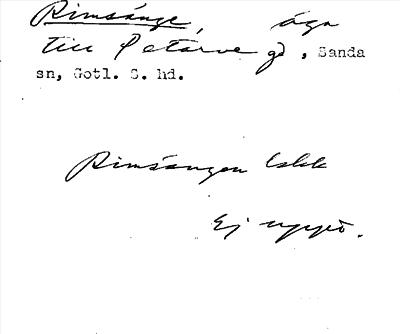 Rimsänge, äga
till Petarve gd, Sanda
sn, Gotl. S. hd.
Rimsängen
Ej uppt.